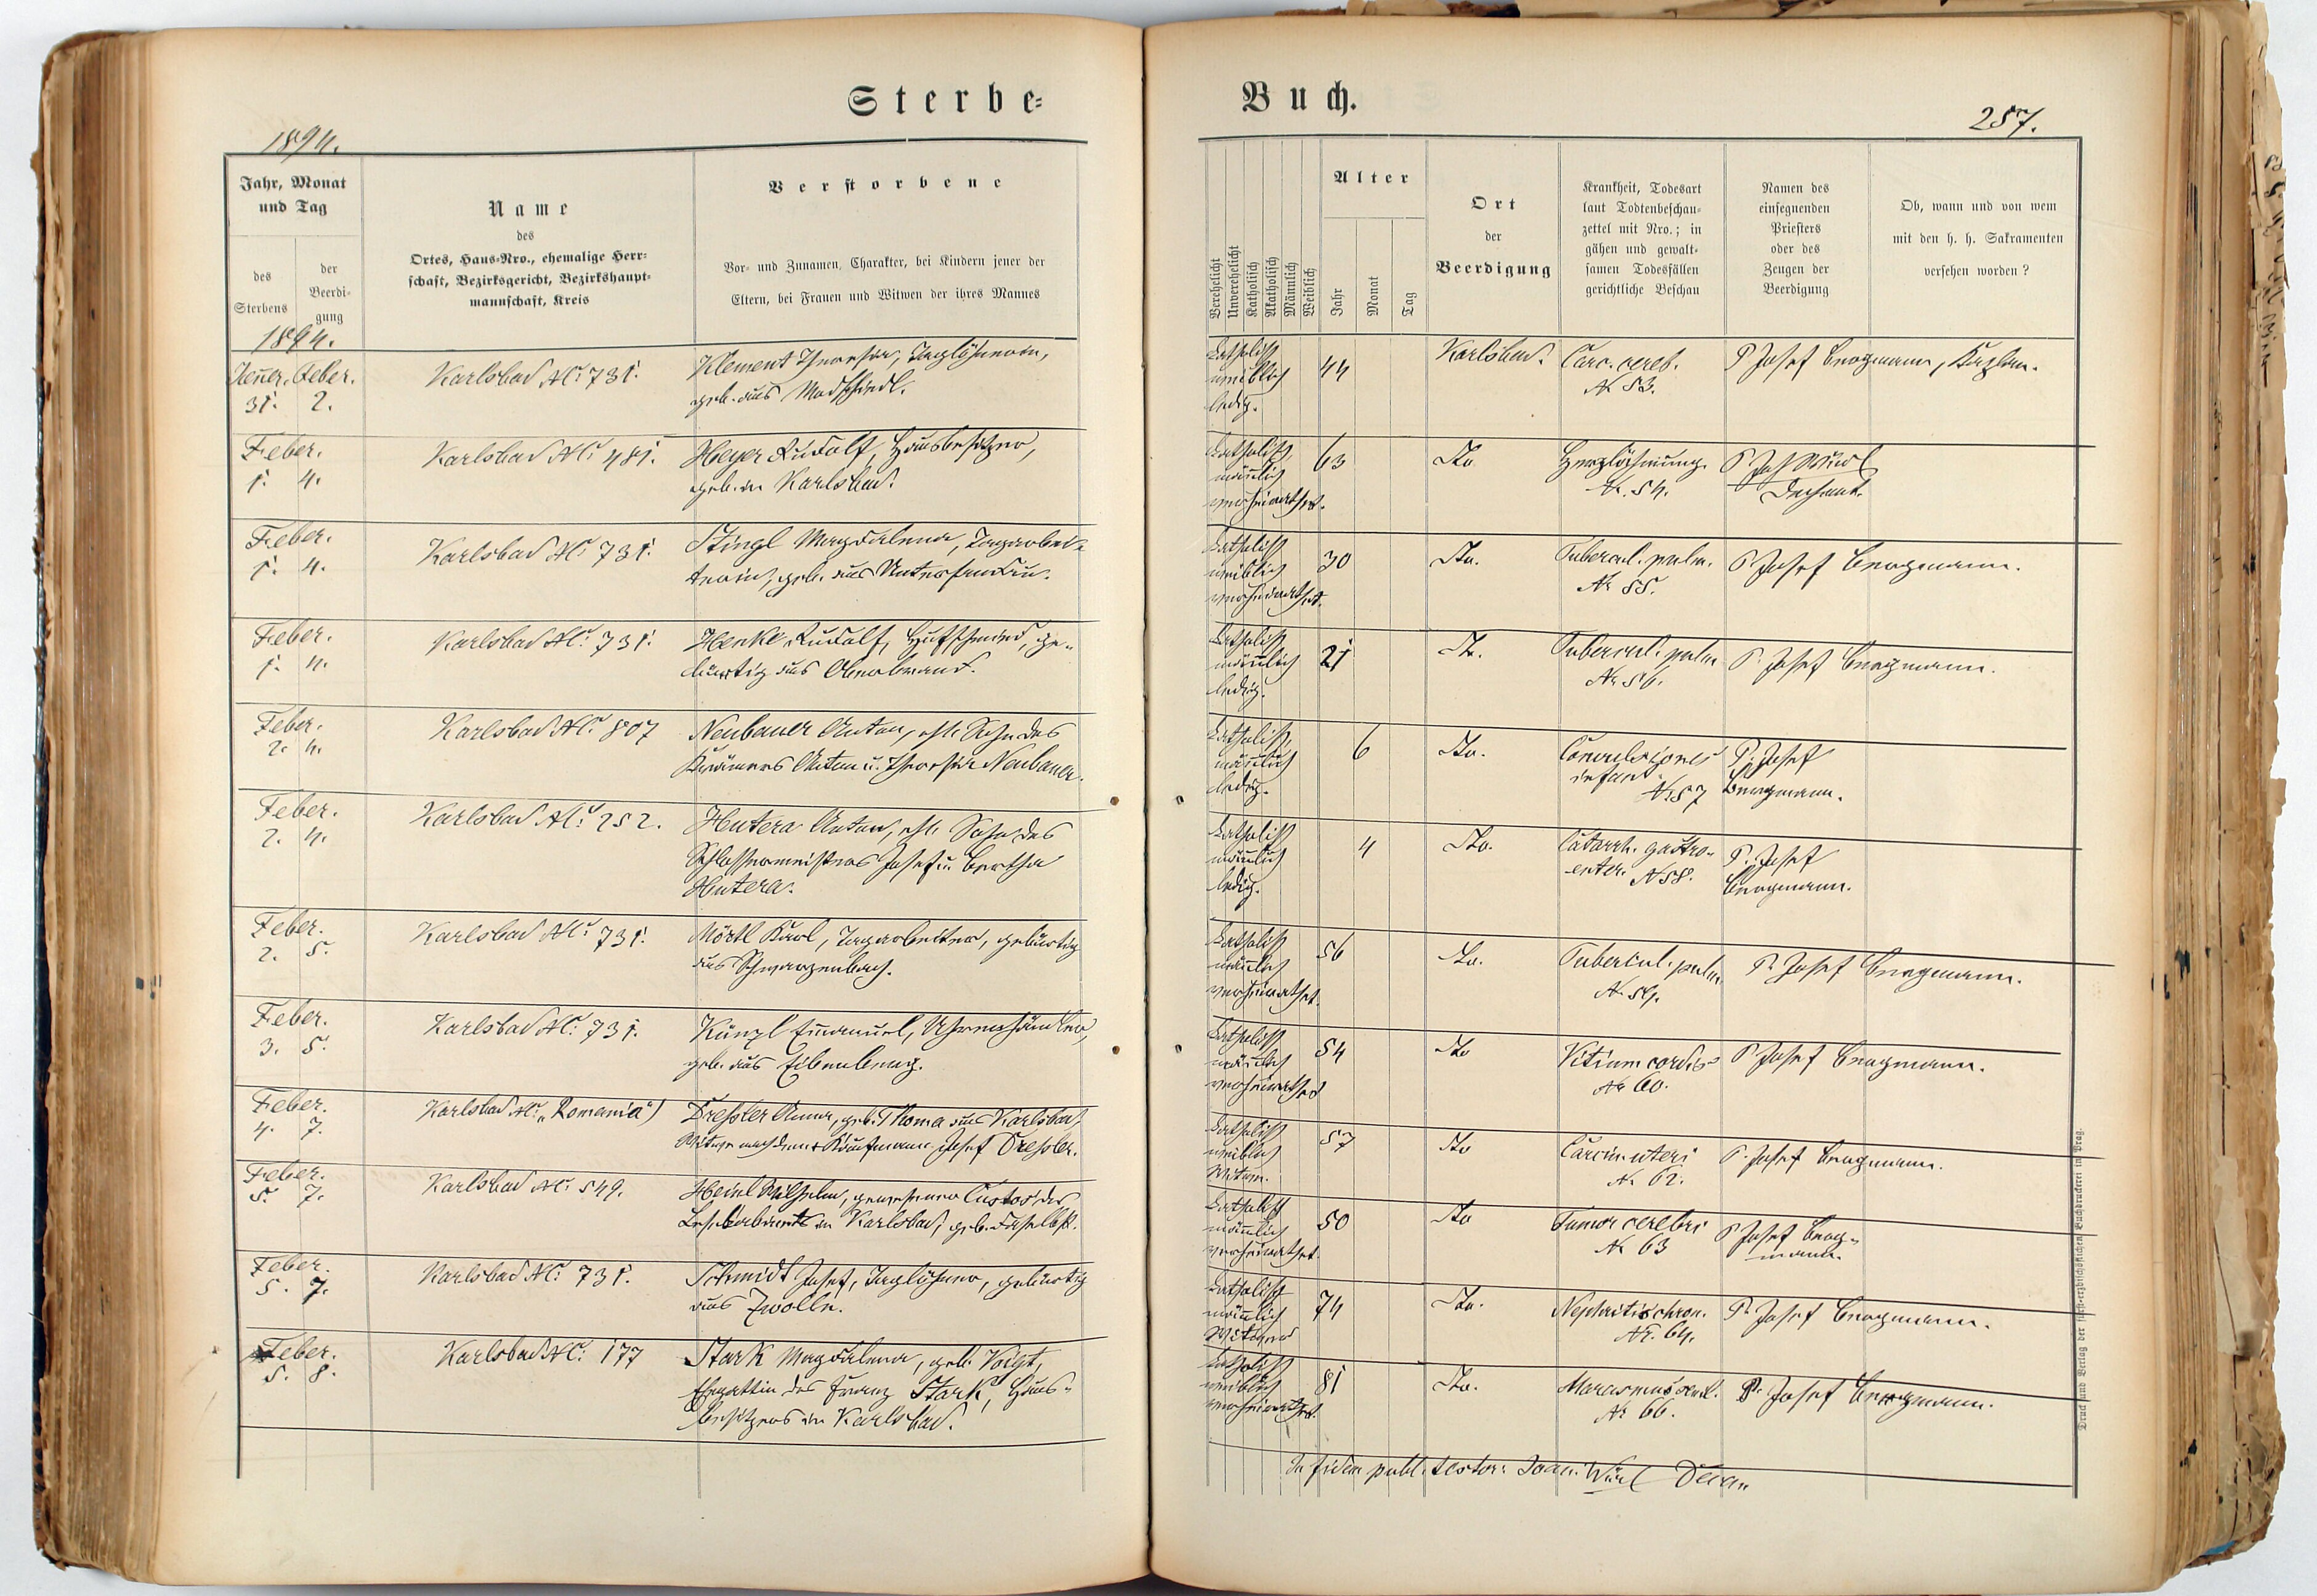 Sterbe-
Buch.
1894.
257.
Jahr, Monat
und Tag
des
Sterbens
der
Beerdi-
gung
Name
des
Ortes, Haus-Nro., ehemalige Herr-
schaft, Bezirksgericht, Bezirkshaupt-
mannschaft, Kreis
Verstorbene
Vor- und Zunamen, Charakter, bei Kindern jener der
Eltern, bei Frauen und Witwen der ihres Mannes
Verehelicht
Unverehelicht
Katholisch
Akatholisch
Männlich
Weiblich
Alter
Jahr
Monat
Tag
Ort
der
Beerdigung
Krankheit, Todesart
laut Todtenbeschau-
zettel mit Nro.; in
gähen und gewalt-
samen Todesfällen
gerichtliche Beschau
Namen des
einsegnenden
Priesters
oder des
Zeugen der
Beerdigung
Ob, wann und von wem
mit den h. h. Sakramenten
versehen worden?
1894.
Jener. Feber.
31. 2.
Karlsbad NC: 731.
Klement Theresia, Taglöhnerin,
geb. aus
katholisch
weiblich
ledig.
44
Karlsbad.
Carc. cereb.
N. 53.
P. Josef Bergmann, Kaplan.
Feber.
1. 4.
Karlsbad NC: 481.
Heyer Rudolf, Hausbesitzer,
geb. in Karlsbad.
katholisch
männlich
verheirathet.
63
dto
Herzlähmung.
N. 54.
Dechant.
Feber.
1. 4.
Karlsbad NC: 731.
Stingl Magdalena, Tagarbei-
terin, geb. aus
katholisch
weiblich
verheirathet.
30
dto.
Tubercul. pulm.
N. 55.
P. Josef Bergmann.
Feber.
1. 4.
Karlsbad NC: 731.
Henke Rudolf, Hufschmied, ge-
bürtig aus Oberbrand.
katholisch
männlich
ledig.
21
dto.
Tubercul. pulm
N. 56.
P. Josef Bergmann.
Feber.
2. 4.
Karlsbad NC: 807
Neubauer Anton, ehl. Sohn des
Krämers Anton u. Theresia Neubauer.
katholisch
männlich
ledig.
6
dto.
Convulsiones
infant.
N. 57
P. Josef
Bergmann.
Feber.
2. 4.
Karlsbad NC: 252.
Hutera Anton, ehl. Sohn des
Schlossermeisters Josef u. Bertha
Hutera.
katholisch
männlich
ledig.
4
dto.
Catarrh. gastro-
enter. N 58.
P. Josef
Bergmann.
Feber.
2. 5.
Karlsbad NC: 731.
Mörtl Karl, Tagarbeiter, gebürtig
aus Schwarzenbach.
katholisch
männlich
verheirathet.
56
dto.
Tubercul. pulm.
N. 59.
P. Josef Bergmann.
Feber.
3. 5.
Karlsbad NC: 731.
Künzl Emanuel, Uhrenhändler,
geb. aus Eibenberg.
katholisch
männlich
verheirathet
54
dto
Vitium cordis
N. 60.
P. Josef Bergmann.
Feber.
4. 7.
Karlsbad NC: „Romania“)
Dressler Anna, geb. Thoma aus Karlsbad,
Witwe nach dem † Kaufmann Josef Dressler.
katholisch
weiblich
Witwe.
57
dto
Carcin. uteri
N. 62.
P. Josef Bergmann.
Feber.
5. 7.
Karlsbad NC: 549.
Heinl Wilhelm, gewesener Custos des
Lesekabinets in Karlsbad, geb. daselbst.
katholisch
männlich
verheirathet.
50
dto
Tumor cerebri
N. 63
P. Josef Berg-
mann.
Feber.
5. 7.
Karlsbad NC: 731.
Schmidt Josef, Taglöhner, gebürtig
aus Zwolln.
katholisch
männlich
Witwer
74
dto.
Nephritis chron.
N. 64.
P. Josef Bergmann.
Feber.
5. 8.
Karlsbad NC: 177
Stark Magdalena, geb. Voigt,
Ehegattin des Franz Stark, Haus-
besitzers in Karlsbad.
katholisch
weiblich
verheirathet.
81
dto.
Marasmus senil.
N. 66.
P. Josef Bergmann.
In fidem publ. testor: Joan. Decan
Druck und Verlag der fürst-erzbischöflichen Buchdruckerei in Prag.